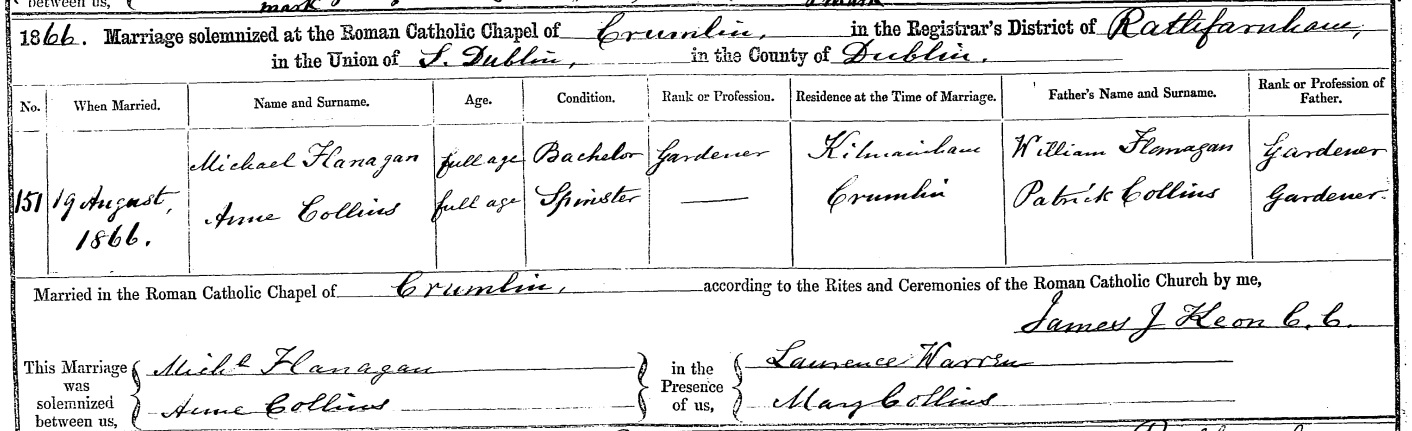 between us, mark mark
1866. Marriage solemnized at the Roman Catholic Chapel of Crumlin, in the Registrar's District of Rathfarnham,
in the Union of S. Dublin, in the County of Dublin.
No. When Married. Name and Surname. Age. Condition. Rank or Profession. Residence at the Time of Marriage. Father's Name and Surname. Rank or Profession of Father.
Michael Flanagan full age Bachelor Gardener Kilmainham William Flanagan Gardener
151 19 August, 1866. Anne Collins full age Spinster — Crumlin Patrick Collins Gardener.
Married in the Roman Catholic Chapel of Crumlin, according to the Rites and Ceremonies of the Roman Catholic Church by me,
James J Keon C.C.
This Marriage was solemnized between us, Michl Flanagan in the Presence of us, Laurence Warren
Anne Collins Mary Collins